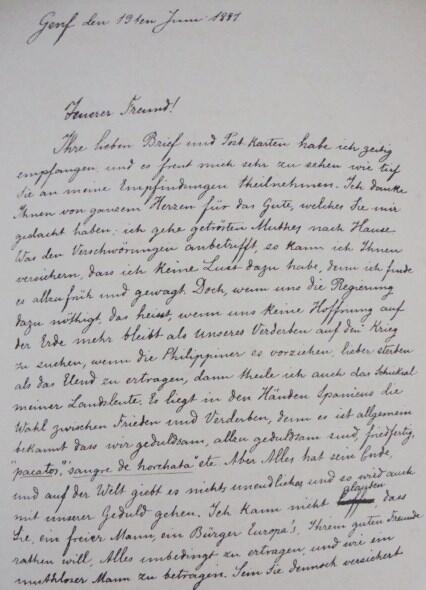 Genf den 19ten Juni 1887
Teuerer Freund!
Ihre lieben Brief und Post Karten habe ich zeitig
empfangen, und es freut mich sehr zu sehen wie tief
Sie an meine Empfindungen theilnehmen. Ich danke
Ihnen von ganzem Herzen für das Gute, welches Sie mir
gedacht haben; ich gehe getrosten Muthes nach Hause
Was den Verschwörungen anbetrifft, so kann ich Ihnen
versichern, dass ich keine Lust dazu habe, denn ich finde
es allzufrüh und gewagt. Doch, wenn uns die Regierung
dazu nöthigt, das heisst, wenn uns keine Hoffnung auf
der Erde mehr bleibt als unseres Verderben auf den Krieg
zu suchen, wenn die Philippiner es vorziehen, lieber sterben
als das Elend zu ertragen, dann theile ich auch das Schicksal
meiner Landsleute. Es liegt in den Händen Spaniens die
Wahl zwischen Frieden und Verderben, denn es ist allgemein
bekannt dass wir geduldsam, allzu geduldsam sind, friedfertig,
"pacatos", "sangre de horchata" etc. Aber Alles hat sein Ende,
und auf der Welt giebt es nichts unendliches und so wird auch
mit unserer Geduld gehen. Ich kann nicht glauben, dass
Sie, ein freier Mann, ein Bürger Europa's, Ihrem guten Freunde
rathen will, Alles unbedingt zu ertragen, und wie ein
muthloser Mann zu betragen. Sie dennoch versichert